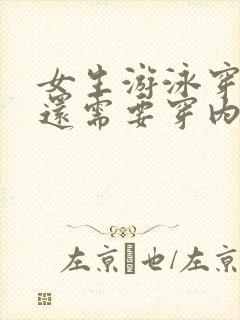 女生游泳穿
還需要穿內
左京 也/左京